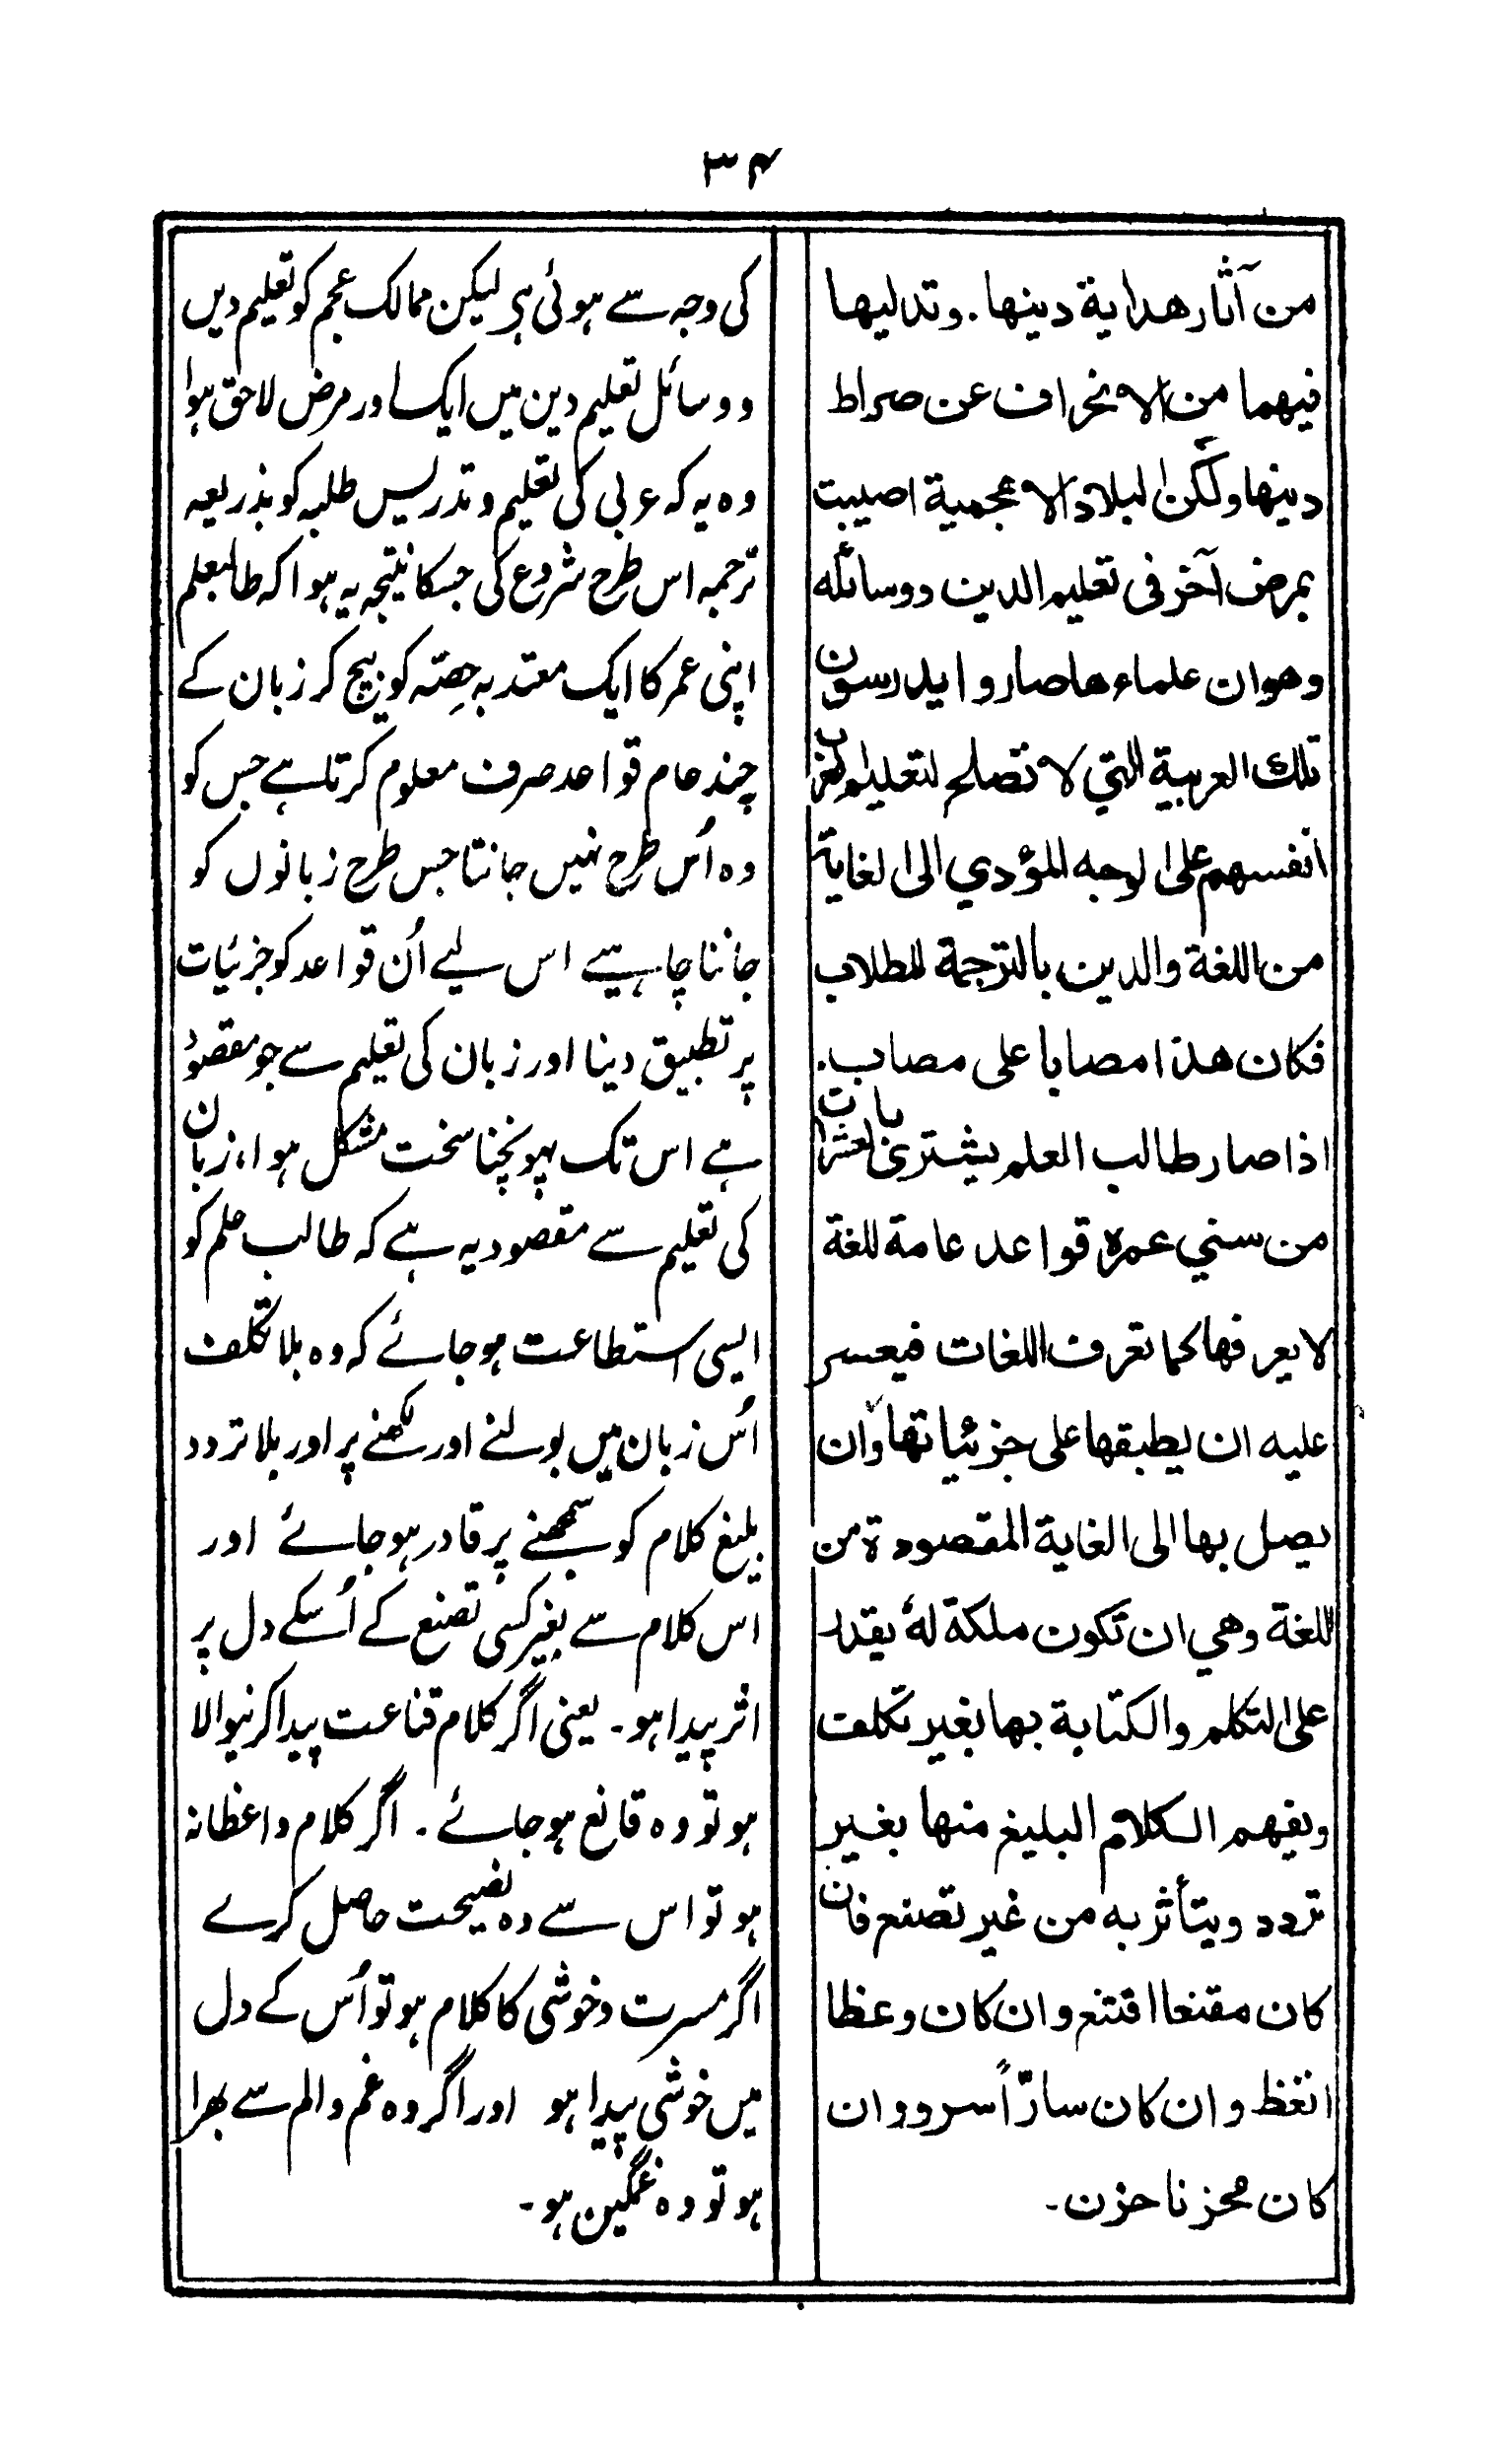 ۳۴
من آثار هداية دينها. وتدليها
فيهما من الانحراف عن صراط
دينها ولكنّ البلاد الاعجمية اصيبت
بمرض آخر فى تعليم الدين ووسائله
وهوان علماءها صاروا يدرسون
تلك العربية التي لا تصلح لتعليم العرب
انفسهم على الوجه المؤدي الى الغاية
من اللغة والدين بالترجمة للطلاب
فكان هذا مصابا على مصاب.
اذا صار طالب العلم يشترى بالعشرات
من سني عمره قواعد عامة للغة
لا يعرفها كما تعرف اللغات فيعسر
عليه ان يطبقها على جزئياتها وان
يصل بها الى الغاية المقصودة من
اللغة وهي ان تكون ملكة لهٗ يقدر
على التكلم والكتابة بها بغير تكلف
ويفهم الكلام البليغ منها بغير
تردد ويتأثر به من غير تصنع فان
كان مقنعا اقتنع وان كان وعظا
اتعظ وان كان سارّاً سر ووان
كان محزنا حزن۔
کی وجہ سے ہوئی ہی لیکن ممالک عجم کو تعلیم دیں
و وسائل تعلیم دین میں ایک اور مرض لاحق ہوا
وہ یہ کہ عربی کی تعلیم و تدریس طلبہ کو بذریعہ
ترجمہ اس طرح شروع کی جسکا نتیجہ یہ ہوا کہ طالبعلم
اپنی عمر کا ایک معتدبہ حِصّہ کو بیچ کر زبان کے
چند عام قواعد صرف معلوم کرتا ہے جس کو
وہ اُس طرح نہیں جانتا جس طرح زبانوں کو
جاننا چاہیے اس لیے اُن قواعد کو جزئیات
پر تطبیق دینا اور زبان کی تعلیم سے جو مقصود
ہے اس تک پہونچنا سخت مشکل ہوا، زبان
کی تعلیم سے مقصود یہ ہے کہ طالب علم کو
ایسی استطاعت ہوجائے کہ وہ بلا تکلف
اُس زبان میں بولنے اور لکھنے پر اور بلا تردد
بلیغ کلام کو سمجھنے پر قادر ہوجائے اور
اس کلام سے بغیر کسی تصنع کے اُسکے دل پر
اثر پیدا ہو۔ یعنی اگر کلام قناعت پیدا کرنیوالا
ہو تو وہ قانع ہوجائے۔ اگر کلام واعظانہ
ہو تو اس سے وہ نصیحت حاصل کرے
اگر مسرت وخوشی کا کلام ہو تو اُس کے دل
میں خوشی پیدا ہو اور اگر وہ غم والم سے بھرا
ہو تو وہ غمگین ہو۔